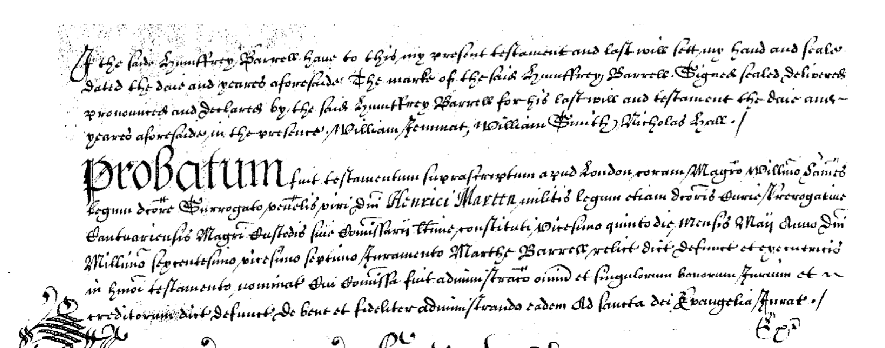 I the saide Humffrey Barrell have to this my present testament and last will sett my hand and seale
dated the daie and yeares aforesaide The marke of the said Humffrey Barrell. Signed sealed delivered
pronounced and declared by the said Humffrey Barrell for his last will and testament the daie and
yeares aforesaide in the presence William Jemmat, William Smith Nicholas Hall
Probatum fuit testamentum suprascriptum apud London coram Magro Willmo James
legum dcore Surrogato venelis viri Dni Henrici Marten militis legum etiam dcoris Curie Prerogative
Cantuariensis Magri Custodis sive Comissarii ltime constituti, Vicesimo quinto die Mensis Maij Anno Dni
Millimo sexcentesimo vicesimo septimo Juramento Marthe Barrell relict dict defunct et executricis
in hmoi testamento nominat Cui Comissa fuit administraco oium et singulorum bonorum Jurium et
creditorum dict defunct De bene et fideliter administrando eadem Ad sancta dei Evangelia Jurat
Exr